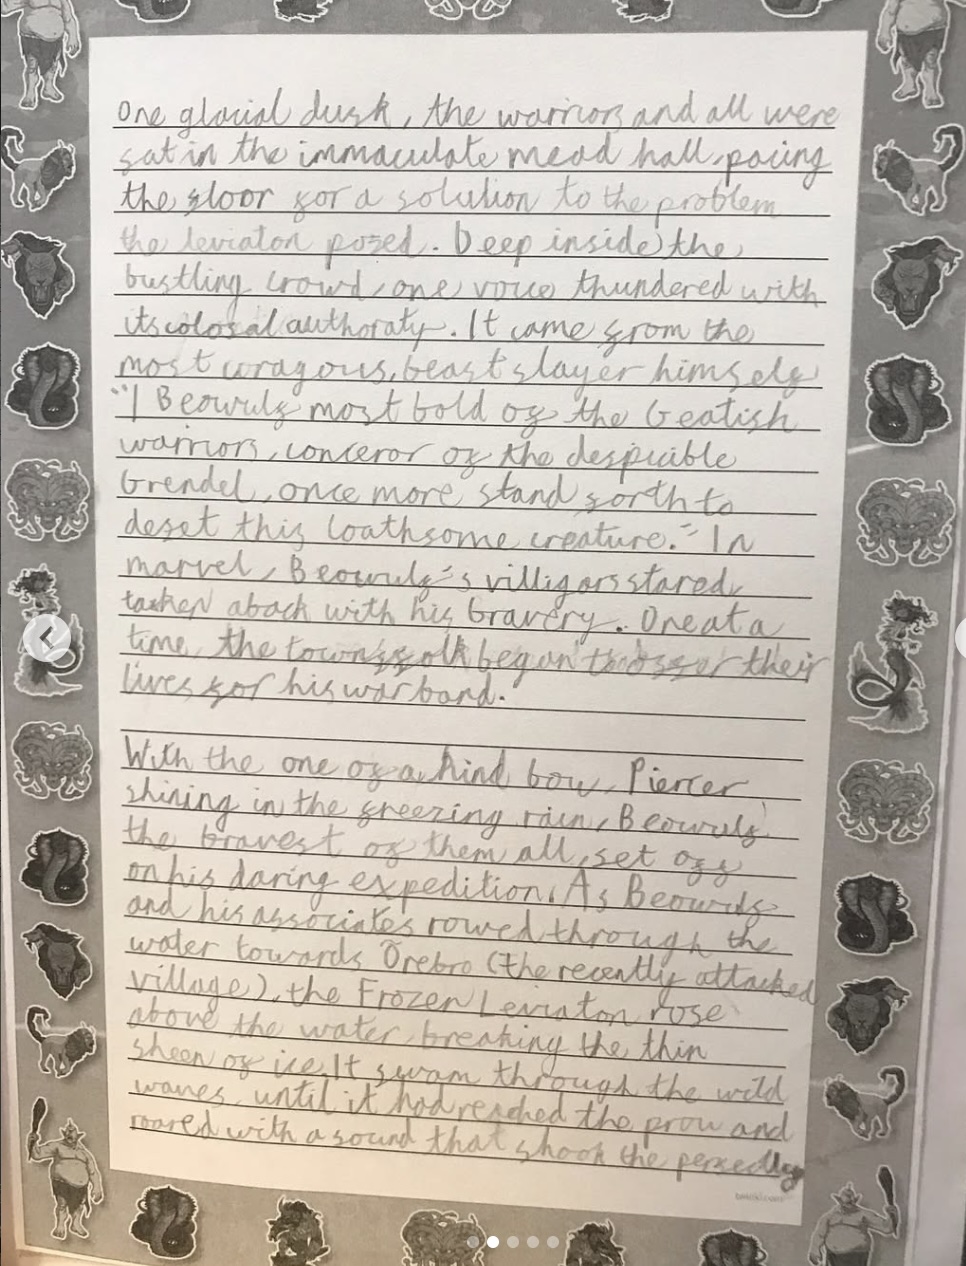 One glacial dusk, the warriors and all were
sat in the immaculate mead hall, pacing
the floor for a solution to the problem
the leviaton posed. Deep inside the
bustling crowd, one voice thundered with
its colosal authoraty. It came from the
most coragous, beast slayer himself
"I Beowulf most bold of the Geatish
warriors, conceror of the despicible
Grendel, once more stand forth to
defet this loathsome creature." In
marvel, Beowulf's villigars stared
tacken aback with his bravery. One at a
time, the townsfolk began to offer their
lives for his warband.
With the one of a kind bow, Piercer
shining in the freezing rain, Beowulf
the bravest of them all, set off
on his daring expedition. As Beowulf
and his associates rowed through the
water towards Örebro (the recently attacked
village), the Frozen Leviaton rose
above the water, breaking the thin
sheen of ice. It swam through the wild
waves, until it had reached the prow and
roared with a sound that shook the perfectly
twinkl.com